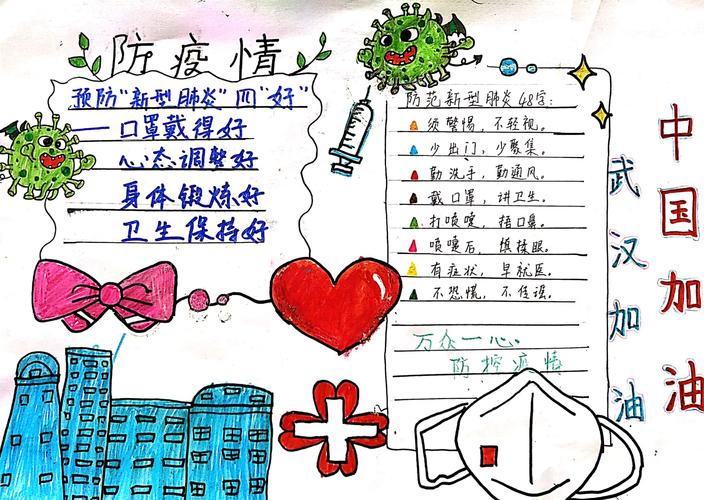 防疫情
预防"新型肺炎"四"好"
口罩戴得好
心态调整好
身体锻炼好
卫生保持好
防范新型肺炎48字:
须警惕，不轻视。
少出门，少聚集。
勤洗手，勤通风。
戴口罩，讲卫生。
打喷嚏，捂口鼻。
喷嚏后，慎揉眼。
有症状，早就医。
不恐慌，不传谣。
万众一心
防控疫情
武汉加油
中国加油